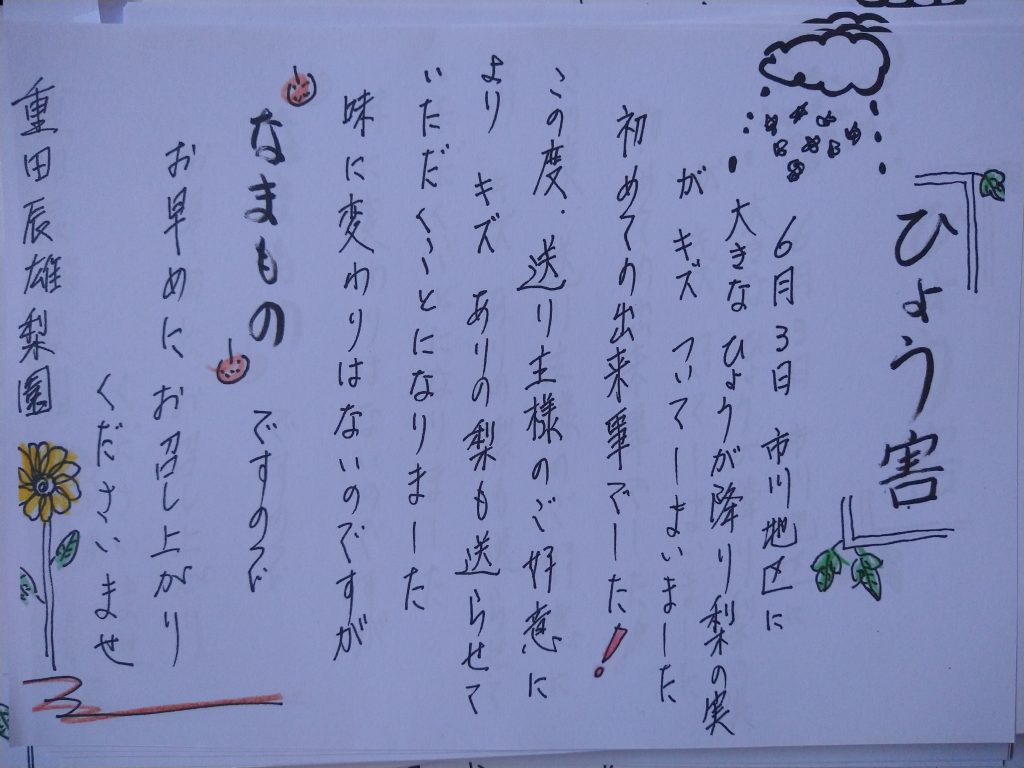 ひょう害
6月3日 市川地区に
大きなひょうが降り梨の実
が キズ ついてしまいました
初めての出来事でした!
この度、送り主様のご好意に
より キズ ありの梨も送らせて
いただくことになりました
味に変わりはないのですが
なまもの ですので
お早めに お召し上がり
くださいませ
重田辰雄梨園